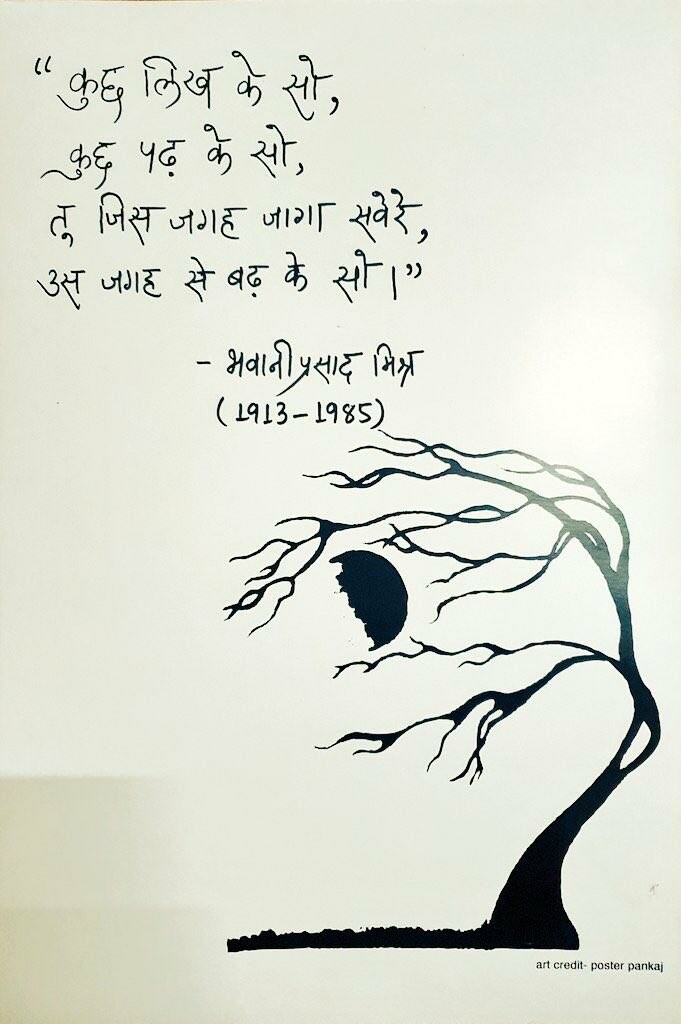 “ कुछ लिख के सो,
कुछ पढ़ के सो,
तू जिस जगह जागा सवेरे,
उस जगह से बढ़ के सो।”
- भवानीप्रसाद मिश्र
(1913-1985)
art credit- poster pankaj